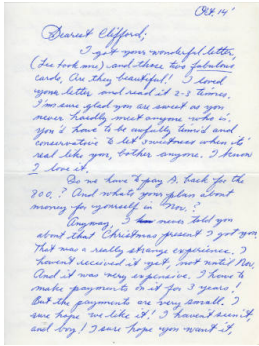 Oct. 14
Dearest Clifford;
I got your wonderful letter
(Lee took me) and those two fabulous
cards. Are they beautiful! I loved
your letter and read it 2-3 times.
I'm sure glad you are sweet as you
never hardly meet anyone who is.
you'd have to be awfully timid and
conservative to let sweetness when its
real like yours, bother anyone. I know
I love it.
Do we have to pay S. back for the
200.? And whats your plan about
money for yourself in Nov.?
Anyway, I never told you
about that Christmas present I got you.
That was a really strange experience. I
havent received it yet, not until Nov.
And it was very expensive. I have to
make payments on it for 3 years!
But the payments are very small. I
sure hope we like it! I havent seen it,
and boy! I sure hope you want it,